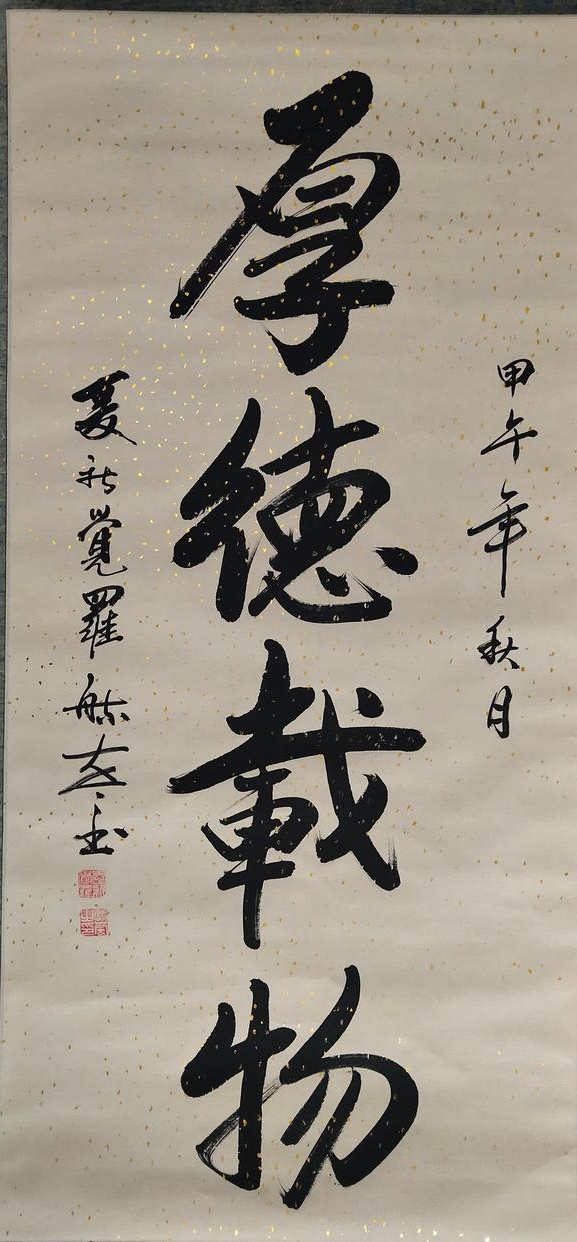 甲午年秋月
厚德載物
愛新覺羅